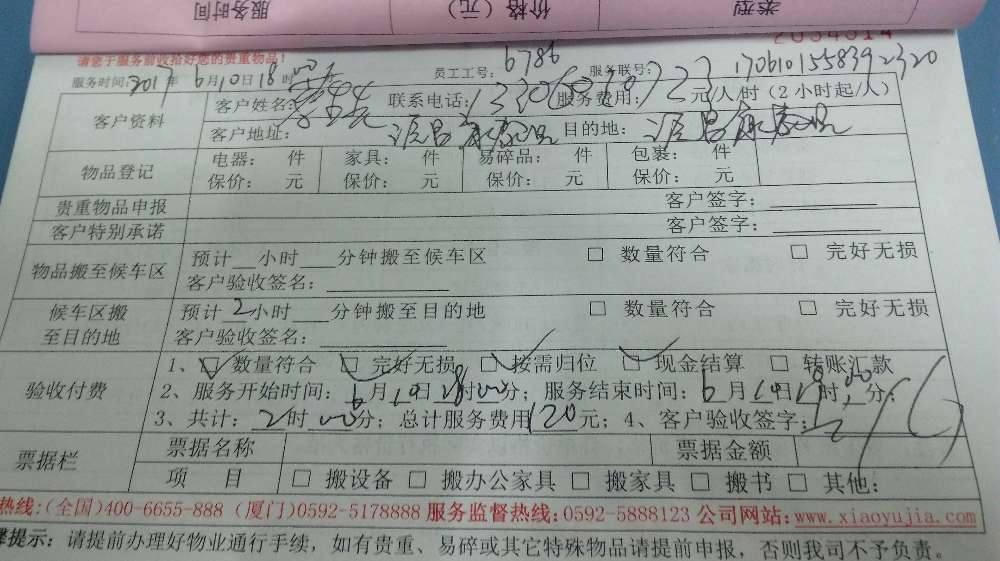 服务时间 价格（元） 类型
请您于服务前收拾好您的贵重物品！
服务时间：2017年6月10日18时 员工工号：6786 服务联号：1706101558392320
客户资料 客户姓名： 联系电话： 服务费用： 元/人/时（2小时起/人）
客户地址： 目的地：
物品登记 电器： 件 家具： 件 易碎品： 件 包裹： 件
保价： 元 保价： 元 保价： 元 保价： 元
贵重物品申报 客户签字：
客户特别承诺 客户签字：
物品搬至候车区 预计__小时___分钟搬至候车区 □ 数量符合 □ 完好无损
客户验收签名：
候车区搬至目的地 预计2小时___分钟搬至目的地 □ 数量符合 □ 完好无损
客户验收签名：
验收付费 1、☑ 数量符合 ☑ 完好无损 ☑ 按需归位 ☑ 现金结算 □ 转账汇款
2、服务开始时间：6月10日 时00分；服务结束时间：6月10日 时00分；
3、共计：2时00分；总计服务费用120元；4、客户验收签字：
票据栏 票据名称 票据金额
项 目 □ 搬设备 □ 搬办公家具 □ 搬家具 □ 搬书 □ 其他：
热线：(全国)400-6655-888 (厦门)0592-5178888 服务监督热线：0592-5888123 公司网站：www.xiaoyujia.com
提示：请提前办理好物业通行手续，如有贵重、易碎或其它特殊物品请提前申报，否则我司不予负责。